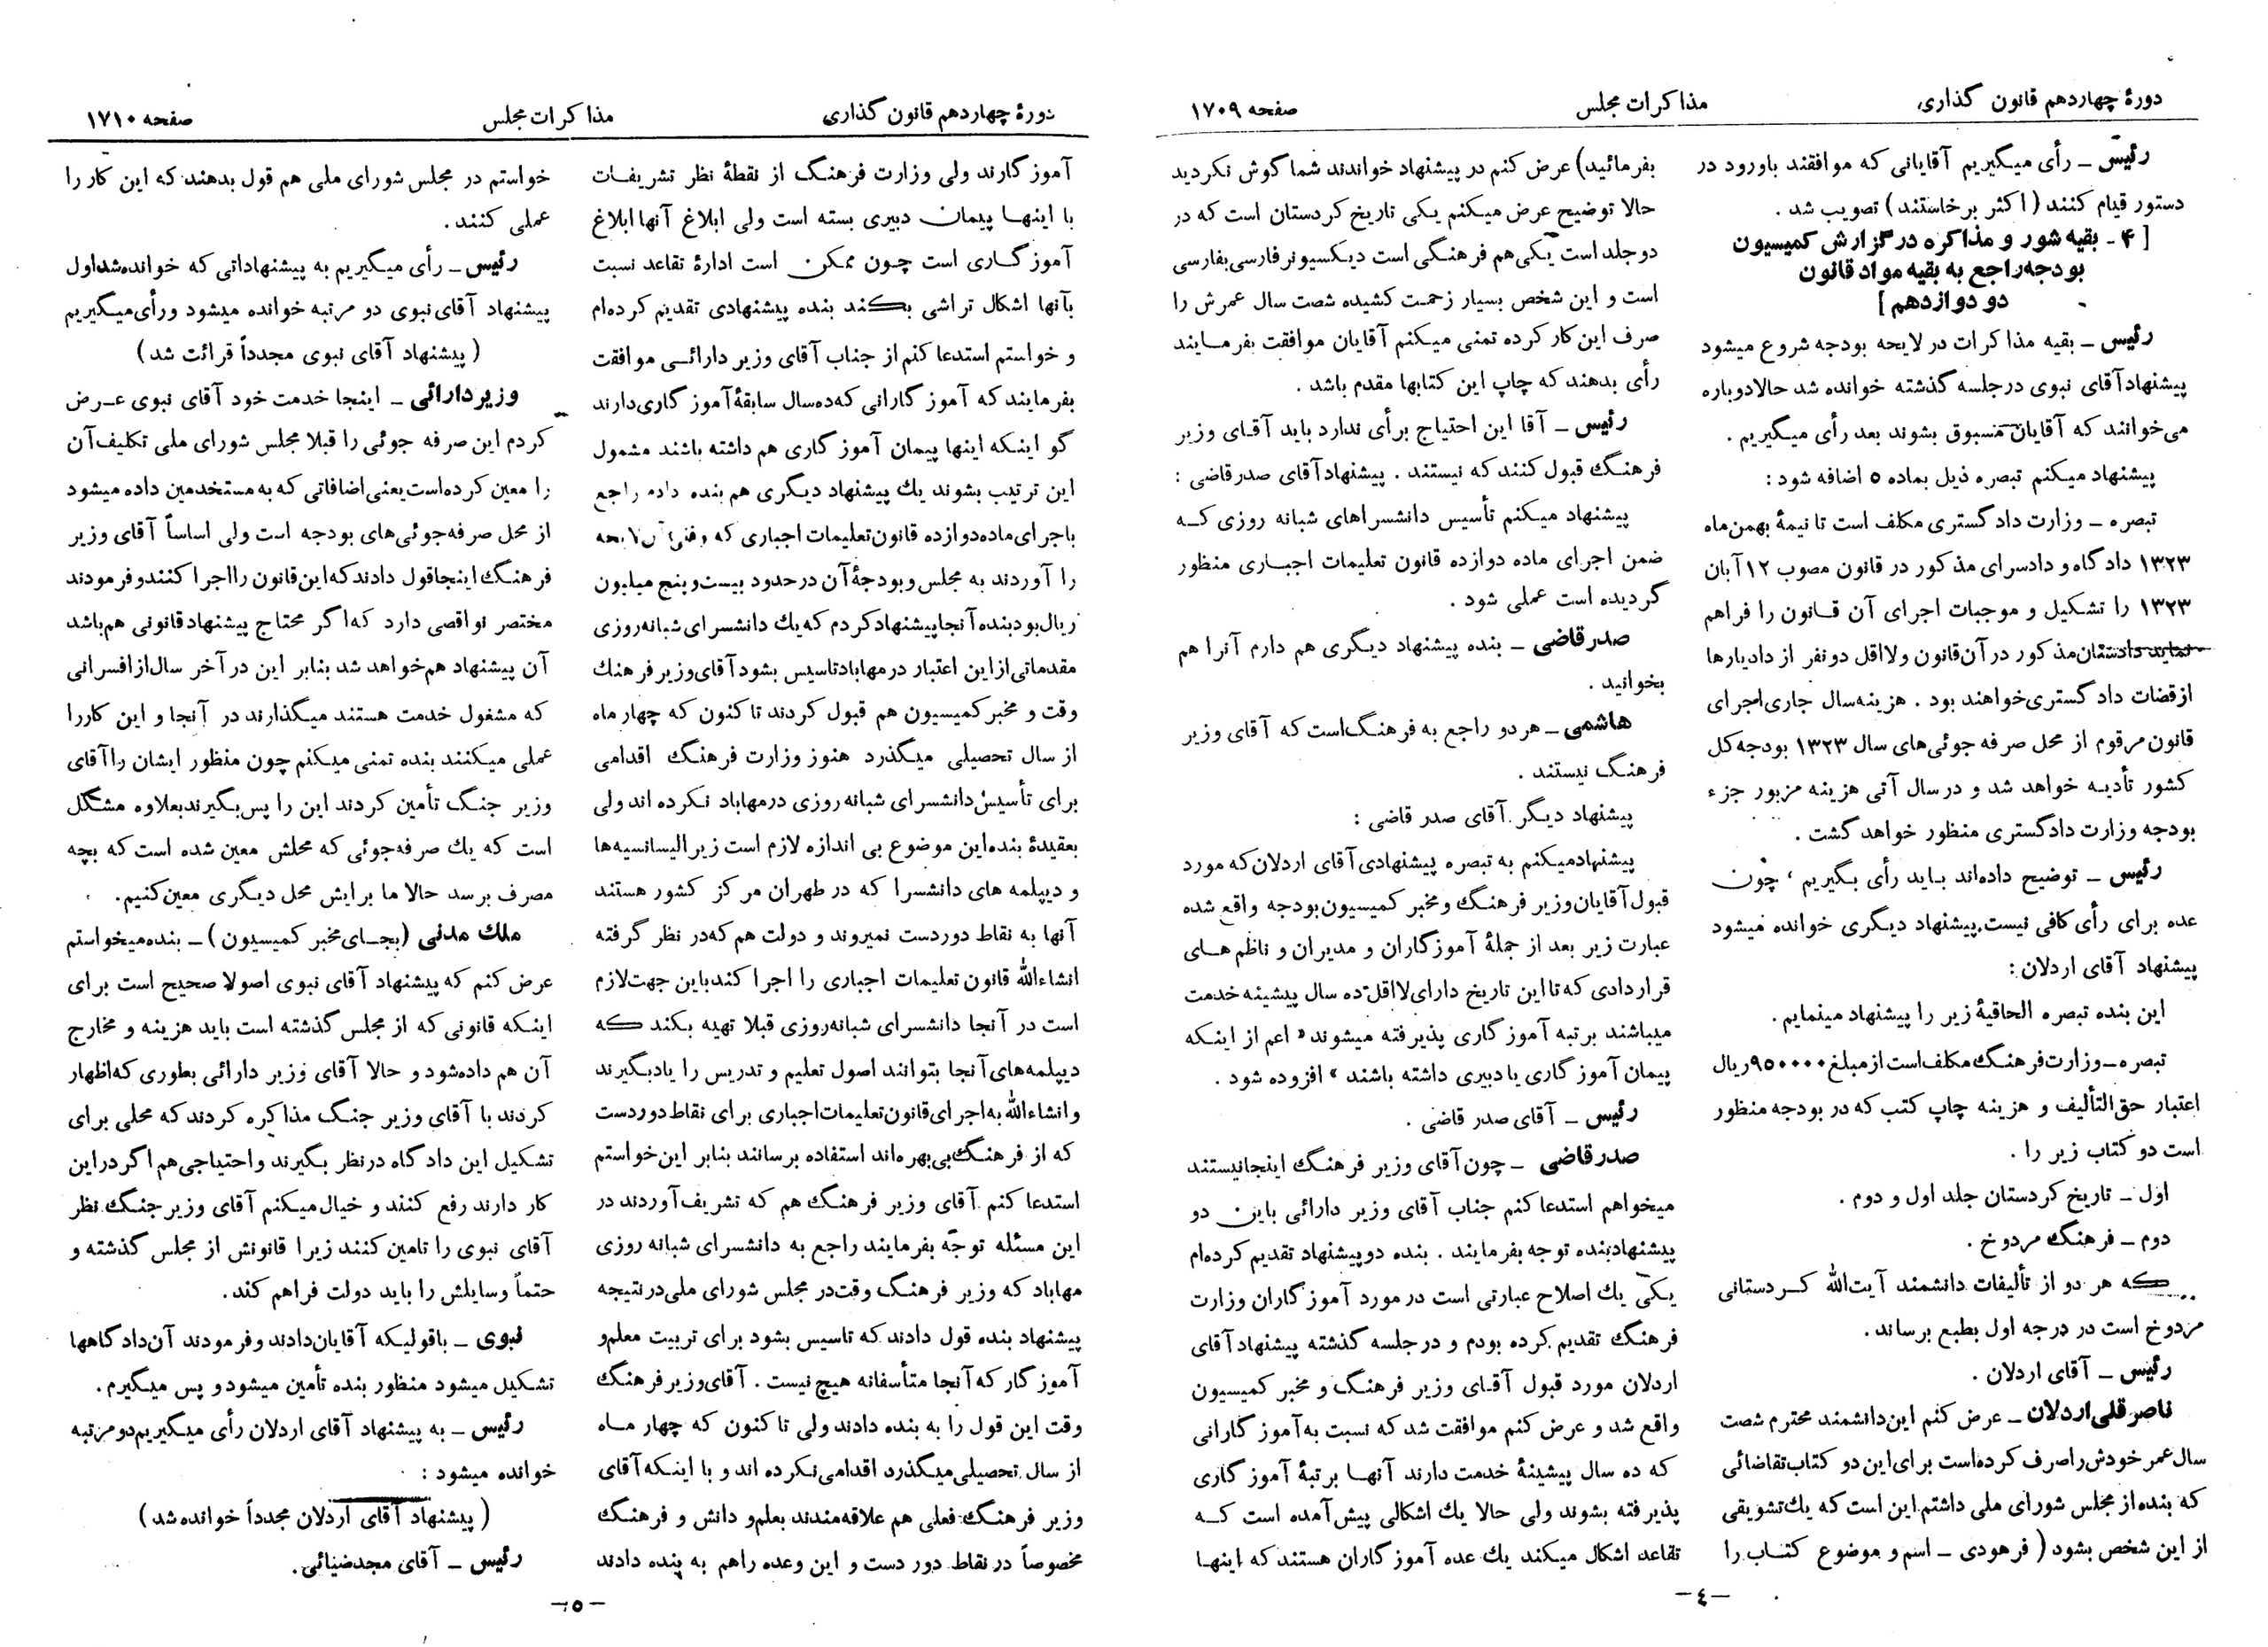 دورهٔ چهاردهم قانون گذاری
مذاکرات مجلس
صفحه ۱۷۰۹
رئیس ـ رأی میگیریم آقایانی که موافقند باورود در
دستور قیام کنند (اکثر برخاستند) تصویب شد .
[ ۴ـ بقیه شور و مذاکره در گزارش کمیسیون
بودجه راجع به بقیه مواد قانون
دو دوازدهم ]
رئیس ـ بقیه مذاکرات در لایحه بودجه شروع میشود
پیشنهاد آقای نبوی در جلسه گذشته خوانده شد حالا دوباره
می‌خوانند که آقایان مسبوق بشوند بعد رأی میگیریم .
پیشنهاد میکنم تبصره ذیل بماده ۵ اضافه شود :
تبصره ـ وزارت دادگستری مکلف است تا نیمهٔ بهمن‌ماه
۱۳۲۳ دادگاه و دادسرای مذکور در قانون مصوب ۱۲ آبان
۱۳۲۳ را تشکیل و موجبات اجرای آن قانون را فراهم
نماید دادستان مذکور در آن قانون ولااقل دو نفر از دادیارها
از قضات دادگستری خواهند بود . هزینه سال جاری اجرای
قانون مرقوم از محل صرفه جوئی‌های سال ۱۳۲۳ بودجه کل
کشور تأدیه خواهد شد و در سال آتی هزینه مزبور جزء
بودجه وزارت دادگستری منظور خواهد گشت .
رئیس ـ توضیح داده‌اند باید رأی بگیریم ، چون
عده برای رأی کافی نیست پیشنهاد دیگری خوانده میشود
پیشنهاد آقای اردلان :
این بنده تبصره الحاقیهٔ زیر را پیشنهاد مینمایم .
تبصره ـ وزارت فرهنگ مکلف است از مبلغ ۹۵۰۰۰۰ ریال
اعتبار حق‌التألیف و هزینه چاپ کتب که در بودجه منظور
است دو کتاب زیر را .
اول ـ تاریخ کردستان جلد اول و دوم .
دوم ـ فرهنگ مردوخ .
که هر دو از تألیفات دانشمند آیت‌الله کردستانی
مردوخ است در درجه اول بطبع برساند .
رئیس ـ آقای اردلان .
ناصرقلی اردلان ـ عرض کنم این دانشمند محترم شصت
سال عمر خودش را صرف کرده‌است برای این دو کتاب تقاضائی
که بنده از مجلس شورای ملی داشتم این است که یك تشویقی
از این شخص بشود ( فرهودی ـ اسم و موضوع کتاب را
بفرمائید) عرض کنم در پیشنهاد خواندند شما گوش نکردید
حالا توضیح عرض میکنم یکی تاریخ کردستان است که در
دو جلد است یکی هم فرهنگی است دیکسیونر فارسی بفارسی
است و این شخص بسیار زحمت کشیده شصت سال عمرش را
صرف این کار کرده تمنی میکنم آقایان موافقت بفرمایند
رأی بدهند که چاپ این کتابها مقدم باشد .
رئیس ـ آقا این احتیاج برأی ندارد باید آقای وزیر
فرهنگ قبول کنند که نیستند . پیشنهاد آقای صدرقاضی :
پیشنهاد میکنم تأسیس دانشسراهای شبانه روزی که
ضمن اجرای ماده دوازده قانون تعلیمات اجباری منظور
گردیده است عملی شود .
صدرقاضی ـ بنده پیشنهاد دیگری هم دارم آنرا هم
بخوانید .
هاشمی ـ هر دو راجع به فرهنگ است که آقای وزیر
فرهنگ نیستند .
پیشنهاد دیگر آقای صدر قاضی :
پیشنهاد میکنم به تبصره پیشنهادی آقای اردلان که مورد
قبول آقایان وزیر فرهنگ و مخبر کمیسیون بودجه واقع شده
عبارت زیر بعد از جملهٔ آموزگاران و مدیران و ناظم های
قراردادی که تا این تاریخ دارای لااقل ده سال پیشینه خدمت
میباشند برتبه آموزگاری پذیرفته میشوند «اعم از اینکه
پیمان آموزگاری یا دبیری داشته باشند » افزوده شود .
رئیس ـ آقای صدر قاضی .
صدرقاضی ـ چون آقای وزیر فرهنگ اینجا نیستند
میخواهم استدعا کنم جناب آقای وزیر دارائی باین دو
پیشنهاد بنده توجه بفرمایند . بنده دو پیشنهاد تقدیم کرده‌ام
یکی یك اصلاح عبارتی است در مورد آموزگاران وزارت
فرهنگ تقدیم کرده بودم و در جلسه گذشته پیشنهاد آقای
اردلان مورد قبول آقای وزیر فرهنگ و مخبر کمیسیون
واقع شد و عرض کنم موافقت شد که نسبت به آموزگارانی
که ده سال پیشینهٔ خدمت دارند آنها برتبهٔ آموزگاری
پذیرفته بشوند ولی حالا یك اشکالی پیش آمده است که
تقاعد اشکال میکند یك عده آموزگاران هستند که اینها
ـ ٤ ـ
دورهٔ چهاردهم قانون گذاری
مذاکرات مجلس
صفحه ۱۷۱۰
آموزگارند ولی وزارت فرهنگ از نقطهٔ نظر تشریفات
با اینها پیمان دبیری بسته است ولی ابلاغ آنها ابلاغ
آموزگاری است چون ممکن است ادارهٔ تقاعد نسبت
بآنها اشکال تراشی بکند بنده پیشنهادی تقدیم کرده‌ام
و خواستم استدعا کنم از جناب آقای وزیر دارائی موافقت
بفرمایند که آموزگارانی که ده سال سابقهٔ آموزگاری دارند
گو اینکه اینها پیمان آموزگاری هم داشته باشند مشمول
این ترتیب بشوند یك پیشنهاد دیگری هم بنده دادم راجع
باجرای ماده دوازده قانون تعلیمات اجباری که وقتی لایحه
را آوردند به مجلس و بودجهٔ آن در حدود بیست و پنج میلیون
ریال بود بنده آنجا پیشنهاد کردم که یك دانشسرای شبانه روزی
مقدماتی از این اعتبار در مهاباد تاسیس بشود آقای وزیر فرهنك
وقت و مخبر کمیسیون هم قبول کردند تا کنون که چهار ماه
از سال تحصیلی میگذرد هنوز وزارت فرهنگ اقدامی
برای تأسیس دانشسرای شبانه روزی در مهاباد نکرده اند ولی
بعقیدهٔ بنده این موضوع بی اندازه لازم است زیرا لیسانسیه‌ها
و دیپلمه های دانشسرا که در طهران مرکز کشور هستند
آنها به نقاط دوردست نمیروند و دولت هم که در نظر گرفته
انشاءالله قانون تعلیمات اجباری را اجرا کند باین جهت لازم
است در آنجا دانشسرای شبانه‌روزی قبلا تهیه بکند که
دیپلمه‌های آنجا بتوانند اصول تعلیم و تدریس را یاد بگیرند
و انشاءالله به اجرای قانون تعلیمات اجباری برای نقاط دوردست
که از فرهنگ بی‌بهره‌اند استفاده برسانند بنابر این خواستم
استدعا کنم آقای وزیر فرهنگ هم که تشریف آوردند در
این مسئله توجه بفرمایند راجع به دانشسرای شبانه روزی
مهاباد که وزیر فرهنگ وقت در مجلس شورای ملی در نتیجه
پیشنهاد بنده قول دادند که تاسیس بشود برای تربیت معلم و
آموزگار که آنجا متأسفانه هیچ نیست . آقای وزیر فرهنگ
وقت این قول را به بنده دادند ولی تا کنون که چهار ماه
از سال تحصیلی میگذرد اقدامی نکرده اند و با اینکه آقای
وزیر فرهنگ فعلی هم علاقه‌مندند بعلم و دانش و فرهنگ
مخصوصاً در نقاط دور دست و این وعده را هم به بنده دادند
خواستم در مجلس شورای ملی هم قول بدهند که این کار را
عملی کنند .
رئیس ـ رأی میگیریم به پیشنهاداتی که خوانده شد اول
پیشنهاد آقای نبوی دو مرتبه خوانده میشود و رأی میگیریم
( پیشنهاد آقای نبوی مجدداً قرائت شد )
وزیردارائی ـ اینجا خدمت خود آقای نبوی عرض
کردم این صرفه جوئی را قبلا مجلس شورای ملی تکلیف آن
را معین کرده است یعنی اضافاتی که به مستخدمین داده میشود
از محل صرفه جوئی‌های بودجه است ولی اساساً آقای وزیر
فرهنگ اینجا قول دادند که این قانون را اجرا کنند و فرمودند
مختصر نواقصی دارد که اگر محتاج پیشنهاد قانونی هم باشد
آن پیشنهاد هم خواهد شد بنابر این در آخر سال از افسرانی
که مشغول خدمت هستند میگذارند در آنجا و این کار را
عملی میکنند بنده تمنی میکنم چون منظور ایشان را آقای
وزیر جنگ تأمین کردند این را پس بگیرند بعلاوه مشگل
است که یك صرفه‌جوئی که محلش معین شده است که بچه
مصرف برسد حالا ما برایش محل دیگری معین کنیم.
ملك مدنی (بجای مخبر کمیسیون) ـ بنده میخواستم
عرض کنم که پیشنهاد آقای نبوی اصولا صحیح است برای
اینکه قانونی که از مجلس گذشته است باید هزینه و مخارج
آن هم داده شود و حالا آقای وزیر دارائی بطوری که اظهار
کردند با آقای وزیر جنگ مذاکره کردند که محلی برای
تشکیل این دادگاه در نظر بگیرند و احتیاجی هم اگر در این
کار دارند رفع کنند و خیال میکنم آقای وزیر جنگ نظر
آقای نبوی را تامین کنند زیرا قانونش از مجلس گذشته و
حتماً وسایلش را باید دولت فراهم کند.
نبوی ـ باقولیکه آقایان دادند و فرمودند آن دادگاهها
تشکیل میشود منظور بنده تأمین میشود و پس میگیرم.
رئیس ـ به پیشنهاد آقای اردلان رأی میگیریم دو مرتبه
خوانده میشود :
( پیشنهاد آقای اردلان مجدداً خوانده شد )
رئیس ـ آقای مجدضیائی.
ـ ٥ ـ